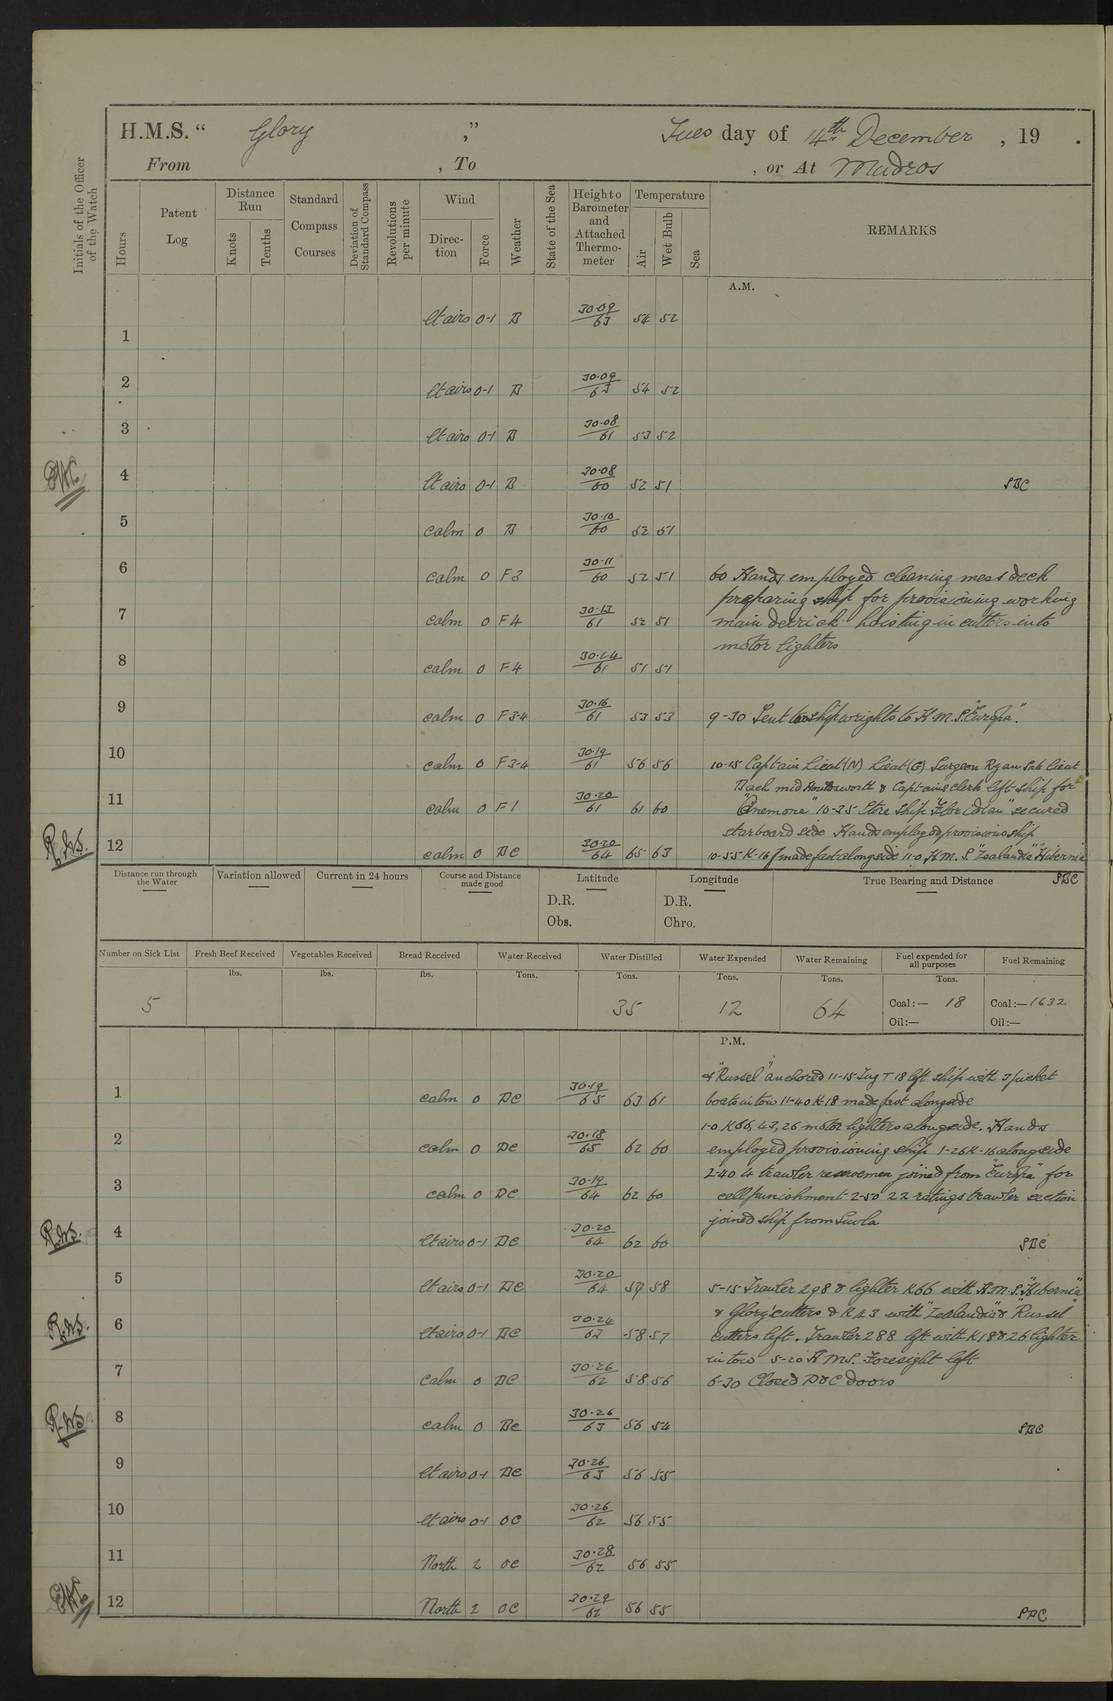 H.M.S. " Glory ," Tues day of 14th December , 19 .
From , To , or At Mudros
Initials of the Officer of the Watch
Hours
Patent Log
Distance Run
Knots
Tenths
Standard Compass Courses
Deviation of Standard Compass
Revolutions per minute
Wind
Direction
Force
Weather
State of the Sea
Height o Barometer and Attached Thermometer
Temperature
Air
Wet Bulb
Sea
REMARKS
A.M.
1 lt airs 0-1 B 30.09/63 54 52
2 lt airs 0-1 B 30.09/63 54 52
3 lt airs 0-1 B 30.08/61 53 52
4 lt airs 0-1 B 30.08/60 52 51 SBC
5 calm 0 B 30.10/60 52 51
6 calm 0 F3 30.11/60 52 51 6.0 Hands employed cleaning mess deck
preparing ship for provisioning working
7 calm 0 F4 30.13/61 52 51 main derrick hoisting in cutters into
motor lighters
8 calm 0 F4 30.14/61 51 51
9 calm 0 F3-4 30.16/61 53 53 9-30 Sent shipwrights to H.M.S. "Europa".
10 calm 0 F3-4 30.19/61 56 56 10-15 Captain Lieut (N) Lieut (G) Surgeon Ryan Sub Lieut
Bach mid & Captains clerk left ship for
11 calm 0 F1 30.20/61 61 60 "Anemone" 10-35 Store Ship secured
starboard side Hands employed provisions ship
12 calm 0 BC 30.20/64 65 63 10-55 K-16 made fast alongside 11-0 H.M.S "Zealandia" "Hibernia
SBC
Distance run through the Water
Variation allowed
Current in 24 hours
Course and Distance made good
Latitude
D.R.
Obs.
Longitude
D.R.
Chro.
True Bearing and Distance
Number on Sick List
Fresh Beef Received
Vegetables Received
Bread Received
Water Received
Water Distilled
Water Expended
Water Remaining
Fuel expended for all purposes
Fuel Remaining
lbs. lbs. lbs. Tons. Tons. Tons. Tons. Tons.
5 35 12 64 Coal:— 18 Coal:— 1632
Oil:— Oil:—
P.M.
& "Russel" anchored 11-15 Tug T 18 left ship with 3 picket
1 calm 0 BC 30.19/65 63 61 boats in tow 11-40 K-18 made fast alongside
1-0 K66, 43, 26 motor lighters alongside. Hands
2 calm 0 BC 30.18/65 62 60 employed provisioning ship 1-26 K-16 alongside
2-40 4 trawler reservemen joined from "Europa" for
3 calm 0 BC 30.19/64 62 60 cell punishment 2-50 22 ratings trawler section
joined ship from Suvla
4 lt airs 0-1 BC 30.20/64 62 60 SBC
5 lt airs 0-1 BC 30.20/64 59 58 5-15 Trawler 298 & lighter K66 with H.M.S. "Hibernia"
& Glory cutters & K43 with "Zealandia" & "Russel"
6 lt airs 0-1 BC 30.24/62 58 57 cutters left. Trawler 288 left with K18 & 26 lighter
in tow 5-20 H.M.S. Foresight left
7 calm 0 BC 30.26/62 58 56 6-30 Closed D & C doors
8 calm 0 BC 30.26/63 56 54 SBC
9 lt airs 0-1 BC 30.26/63 56 55
10 lt airs 0-1 OC 30.26/62 56 55
11 North 2 OC 30.28/62 56 55
12 North 2 OC 30.29/62 56 55 SBC